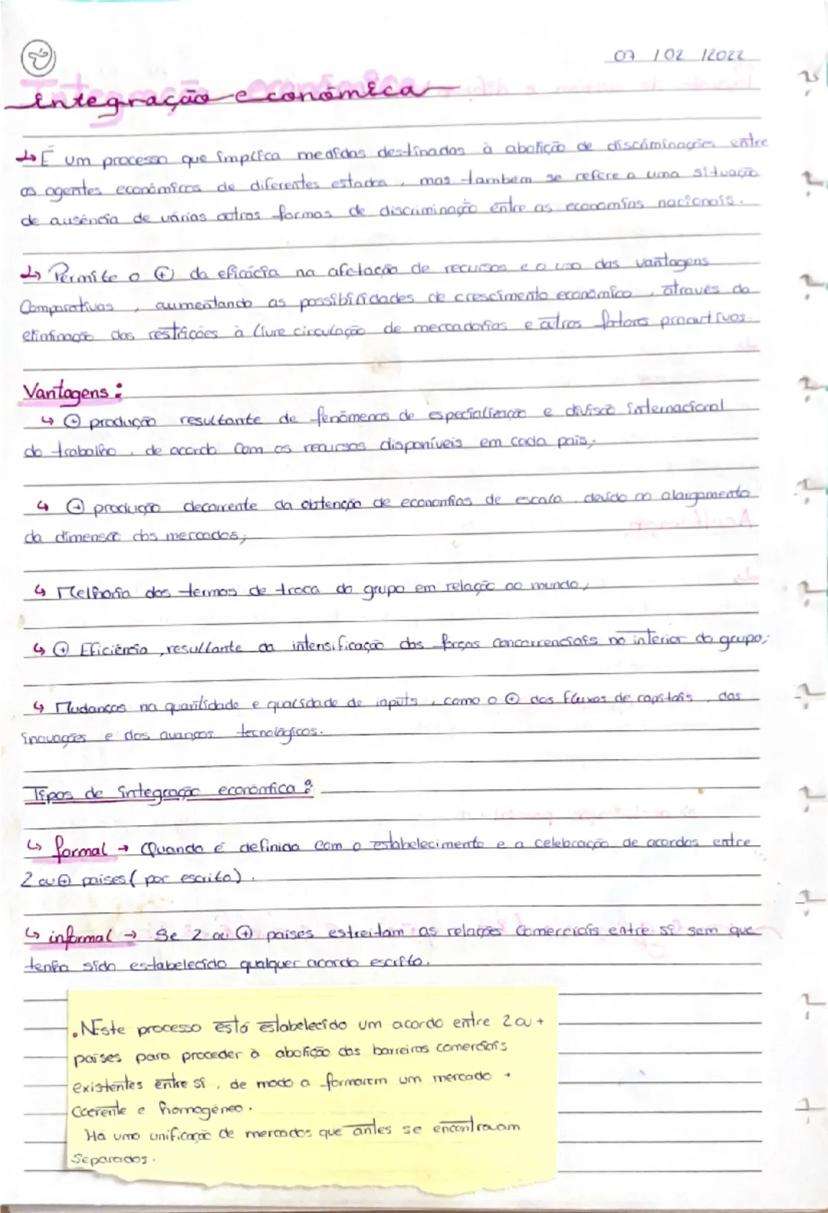 07 / 02 / 2022
integração económica
↳ É um processo que implica medidas destinadas à abolição de discriminações entre
os agentes económicos de diferentes estados, mas tambem se refere a uma situação
de ausência de várias outras formas de discriminação entre as economias nacionais.
↳ Permite o ⊕ da eficácia na afetação de recursos e o uso das vantagens
Comparativas, aumentando as possibilidades de crescimento económico, através da
eliminação das restrições à livre circulação de mercadorias e outros fatores produtivos.
Vantagens:
↳ ⊕ produção resultante de fenómenos de especialização e divisão internacional
do trabalho, de acordo com os recursos disponíveis em cada país;
↳ ⊕ produção decorrente da obtenção de economias de escala, devido ao alargamento
da dimensão dos mercados;
↳ Melhoria dos termos de troca do grupo em relação ao mundo;
↳ ⊕ Eficiência, resultante da intensificação das forças concorrenciais no interior do grupo;
↳ Mudanças na quantidade e qualidade de inputs, como o ⊕ dos fluxos de capitais, das
inovações e dos avanços tecnológicos.
Tipos de integração económica:
↳ formal → Quando é definida com o estabelecimento e a celebração de acordos entre
2 ou ⊕ países (por escrito).
↳ informal → Se 2 ou ⊕ países estreitam as relações Comerciais entre si sem que
tenha sido estabelecido qualquer acordo escrito.
. Neste processo está estabelecido um acordo entre 2 ou +
países para proceder à abolição das barreiras comerciais
existentes entre si, de modo a formarem um mercado +
Coerente e homogéneo.
Há uma unificação de mercados que antes se encontravam
Separados.